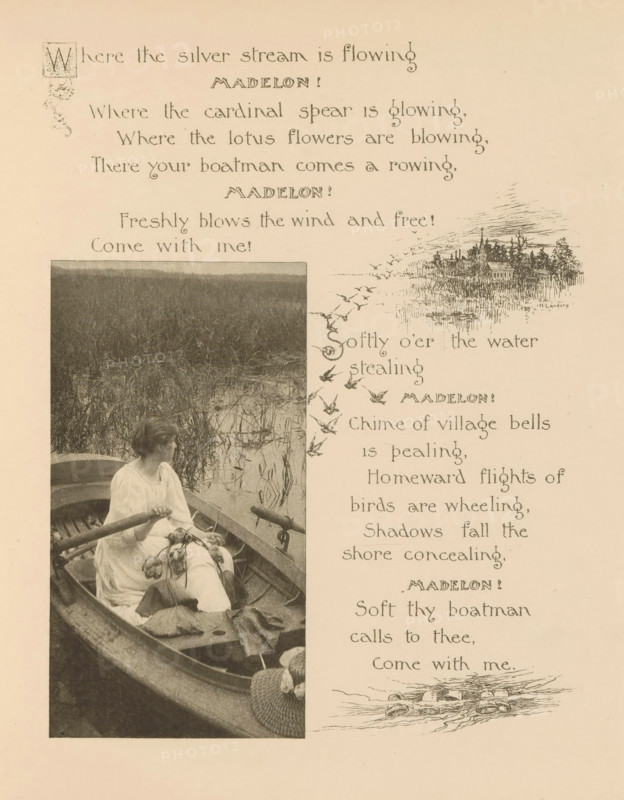 Where the silver stream is flowing
MADELON!
Where the cardinal spear is glowing,
Where the lotus flowers are blowing,
There your boatman comes a rowing,
MADELON!
Freshly blows the wind and free!
Come with me!
Softly o'er the water
stealing
MADELON!
Chime of village bells
is pealing,
Homeward flights of
birds are wheeling,
Shadows fall the
shore concealing,
MADELON!
Soft thy boatman
calls to thee,
Come with me.
PHOTO12